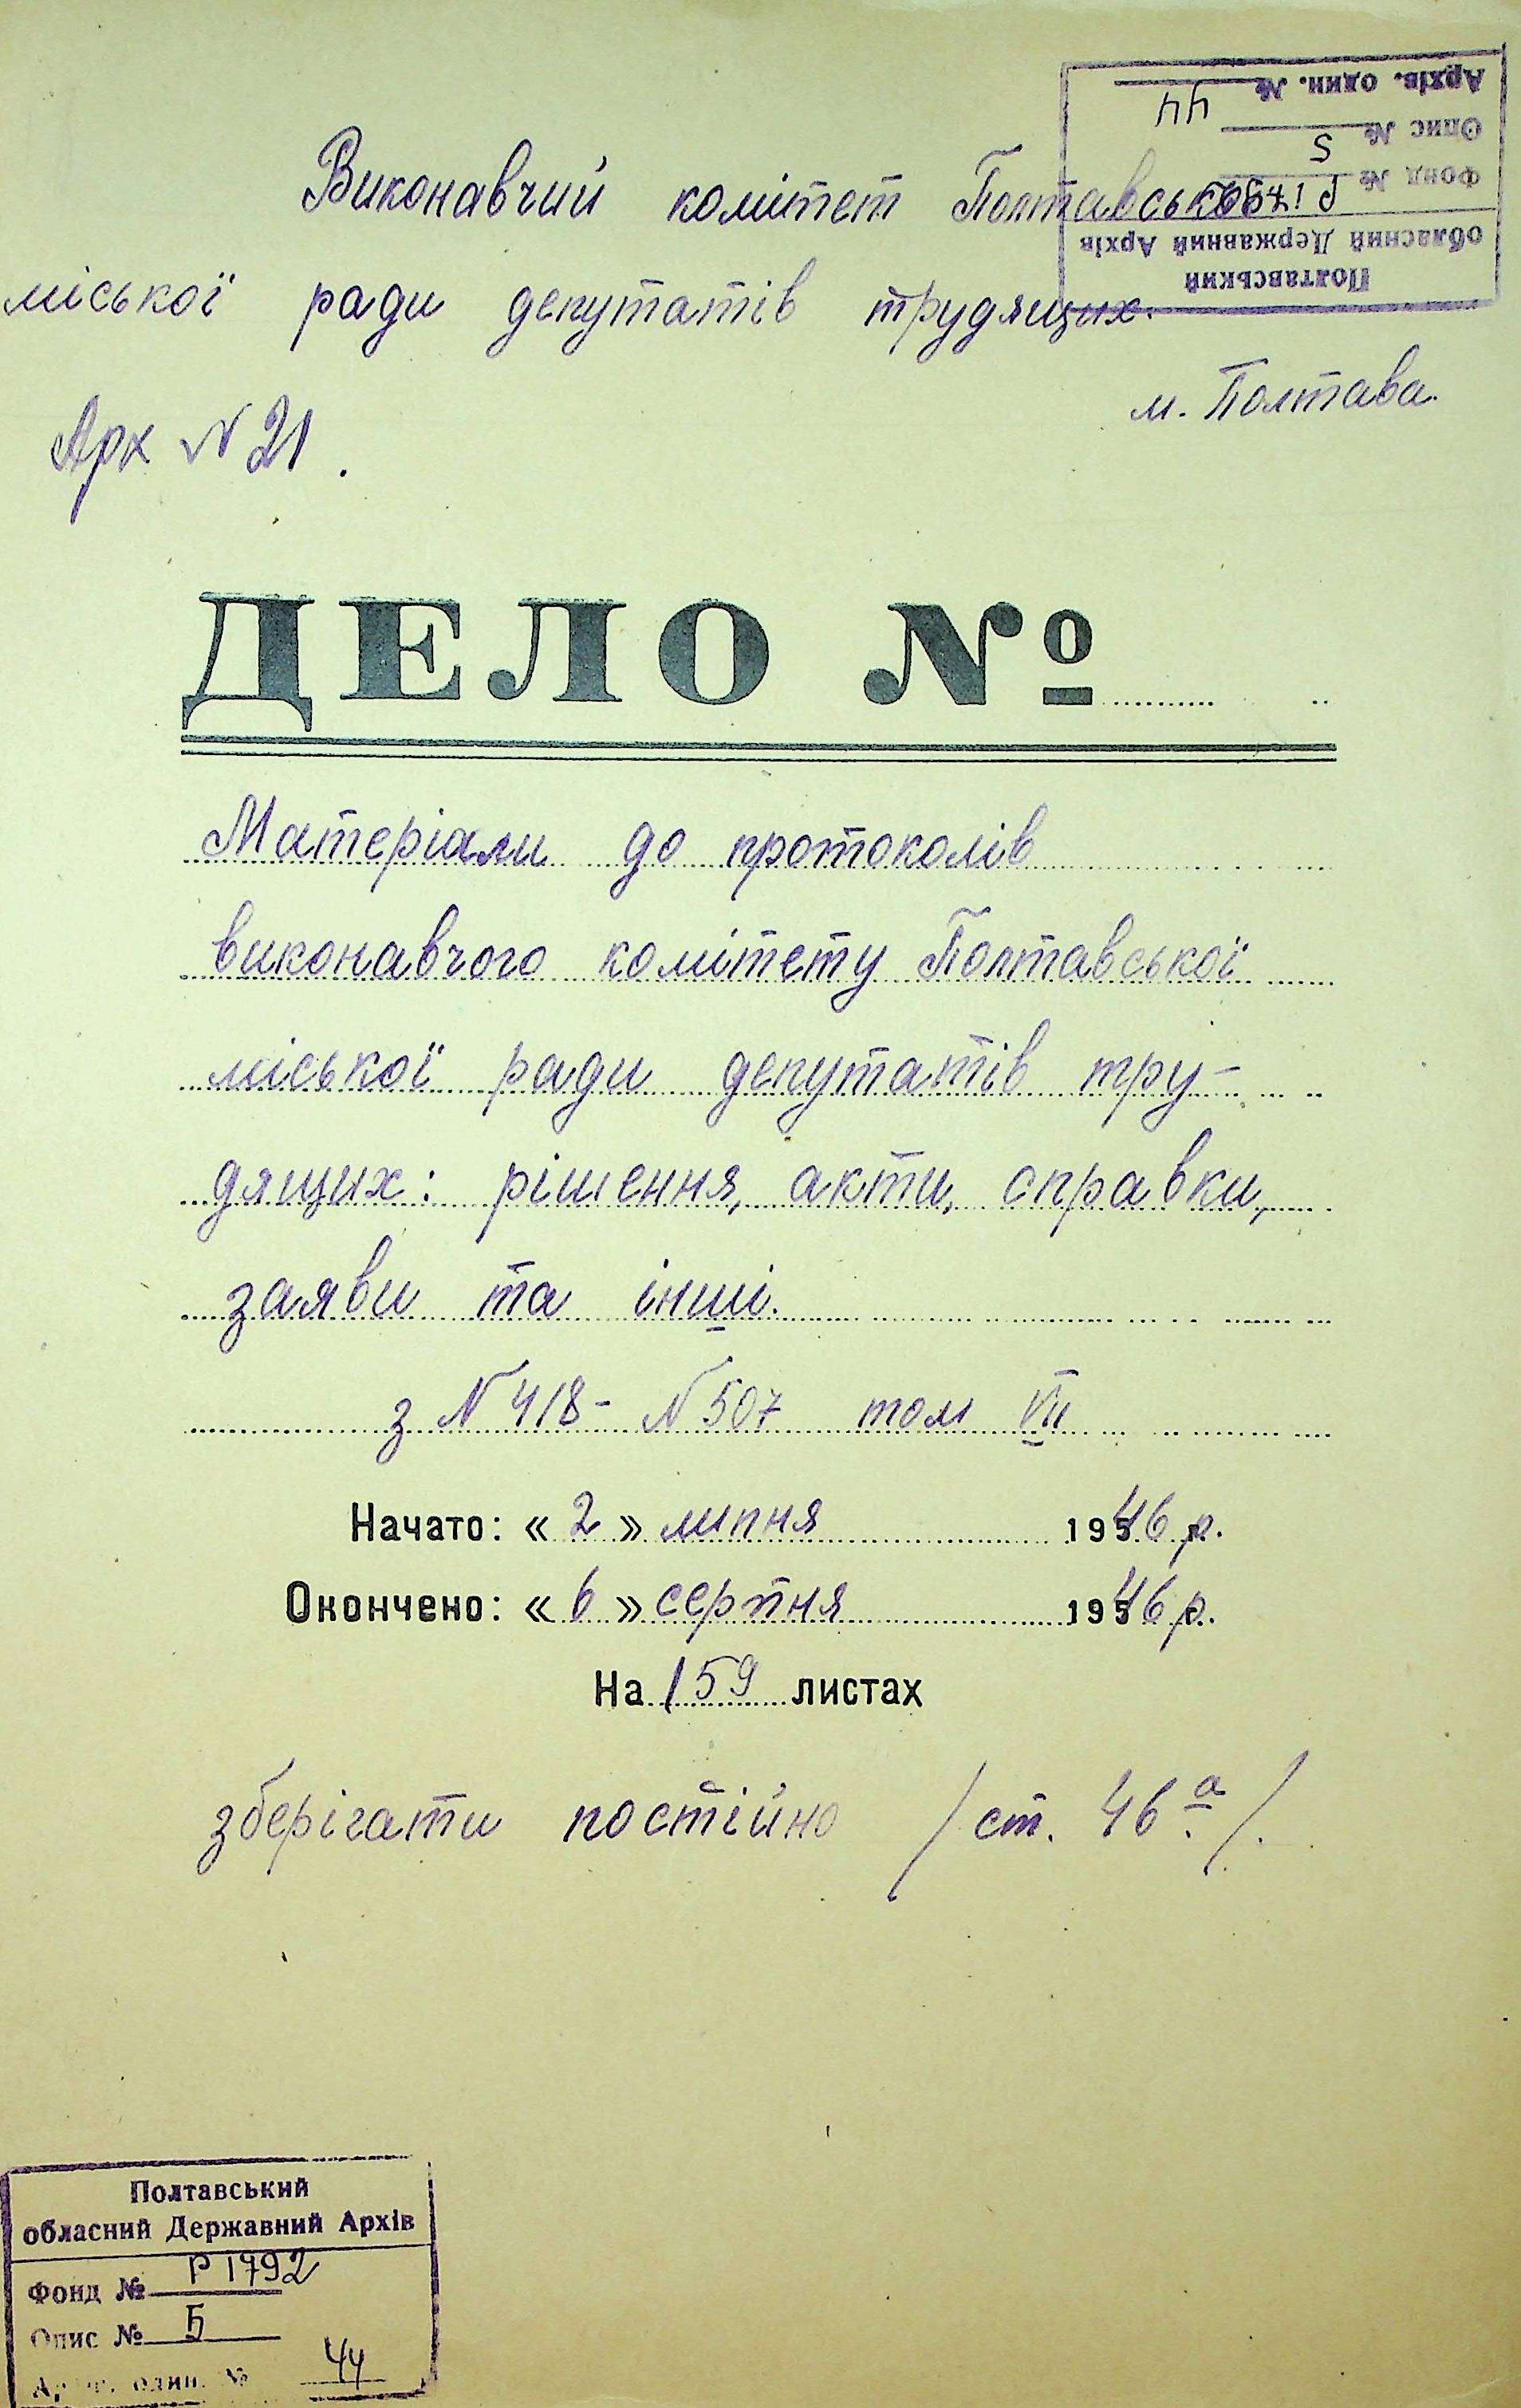 Полтавський
обласний Державний Архів
Фонд № Р 1792
Опис № 5
Архів. один. № 44
Виконавчий комітет Полтавської
міської ради депутатів трудящих.
м. Полтава.
Арх №21.
ДЕЛО №
Матеріали до протоколів
виконавчого комітету Полтавської
міської ради депутатів тру-
дящих: рішення, акти, справки,
заяви та інші.
з №418- №507 том VII
Начато: « 2 » липня 1946 р.
Окончено: « 6 » серпня 1946 р.
На 159 листах
зберігати постійно /ст. 46 а/.
Полтавський
обласний Державний Архів
Фонд № Р 1792
Опис № 5
один. № 44